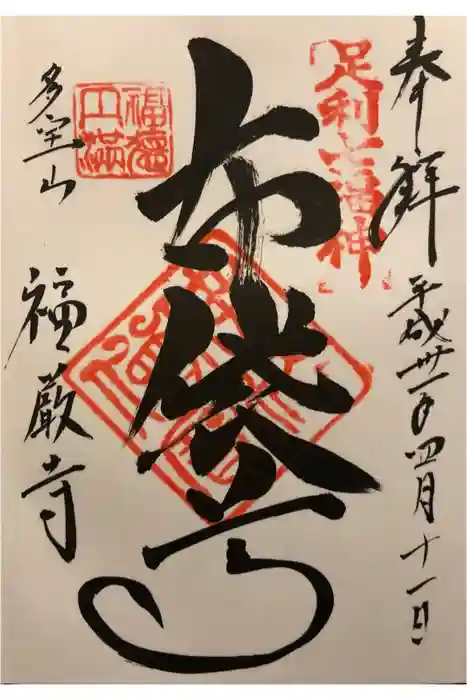 奉拝
平成卅一年四月十一日
足利七福神
布袋尊
福徳円満
多宝山
福厳寺